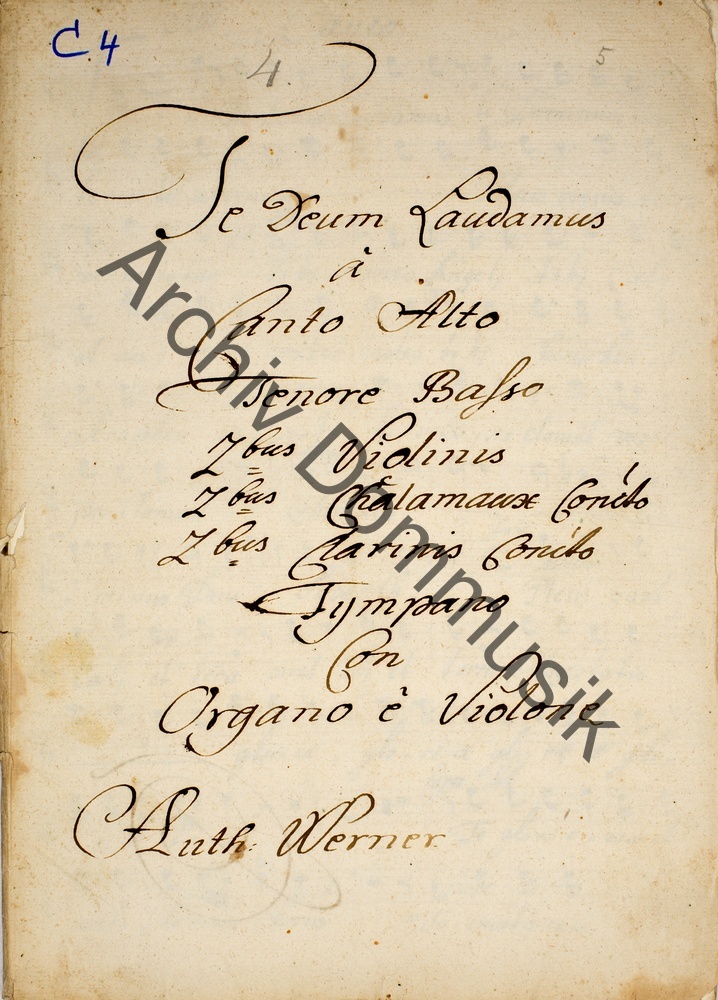 C. 4
4.
5
Te Deum Laudamus
â
Canto Alto
Tenore Basso
2bus Violinis
2bus Chalamaux Concto
2bus Clarinis Concto
Tympano
Con
Organo ê Violone
Auth: Werner
Archiv Dommusik